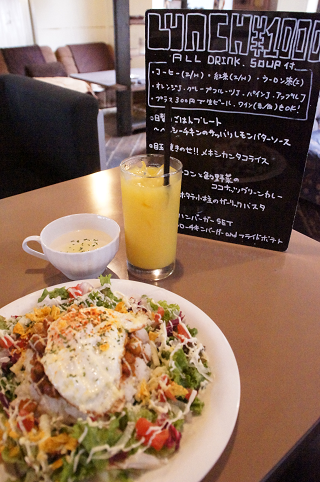 LUNCH ¥1000
ALL DRINK. SOUP 付
・コーヒー(H/I)・紅茶(H/I)・ウーロン茶(I)
・オレンジJ・グレープフルーツJ・パインJ・アップルJ
・プラス300円で生ビール、ワイン(赤/白)もOK!
ごはんプレート
チキンのさっぱりレモンバターソース
のせ!! メキシカンタコライス
コンと野菜の
ココナッツグリーンカレー
ホタテ小柱のガーリックパスタ
ハンバーガーSET
チキンバーガーandフライドポテト